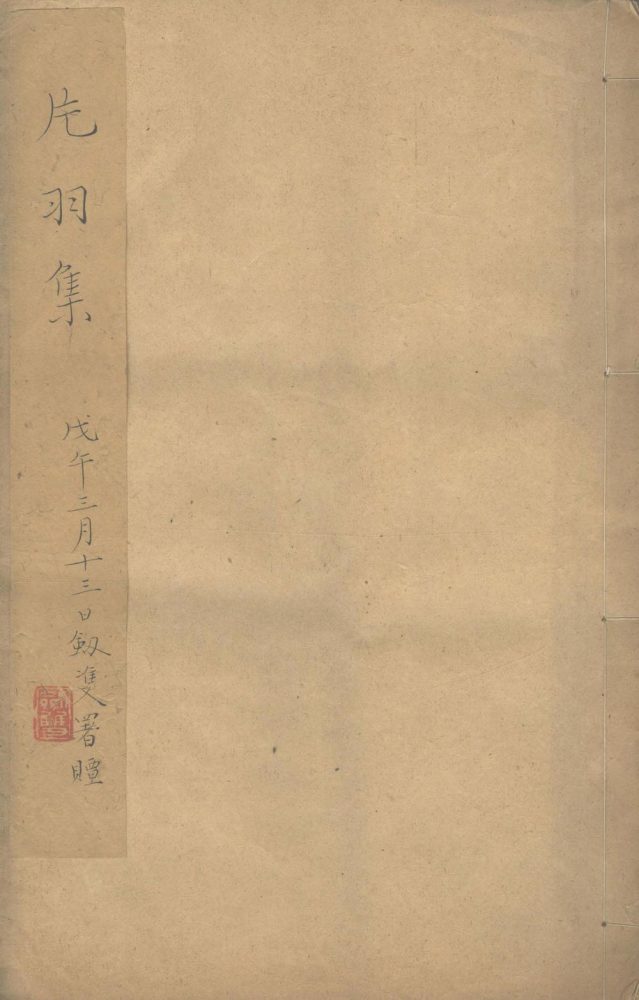 片羽集
戊午三月十三日釼隻署